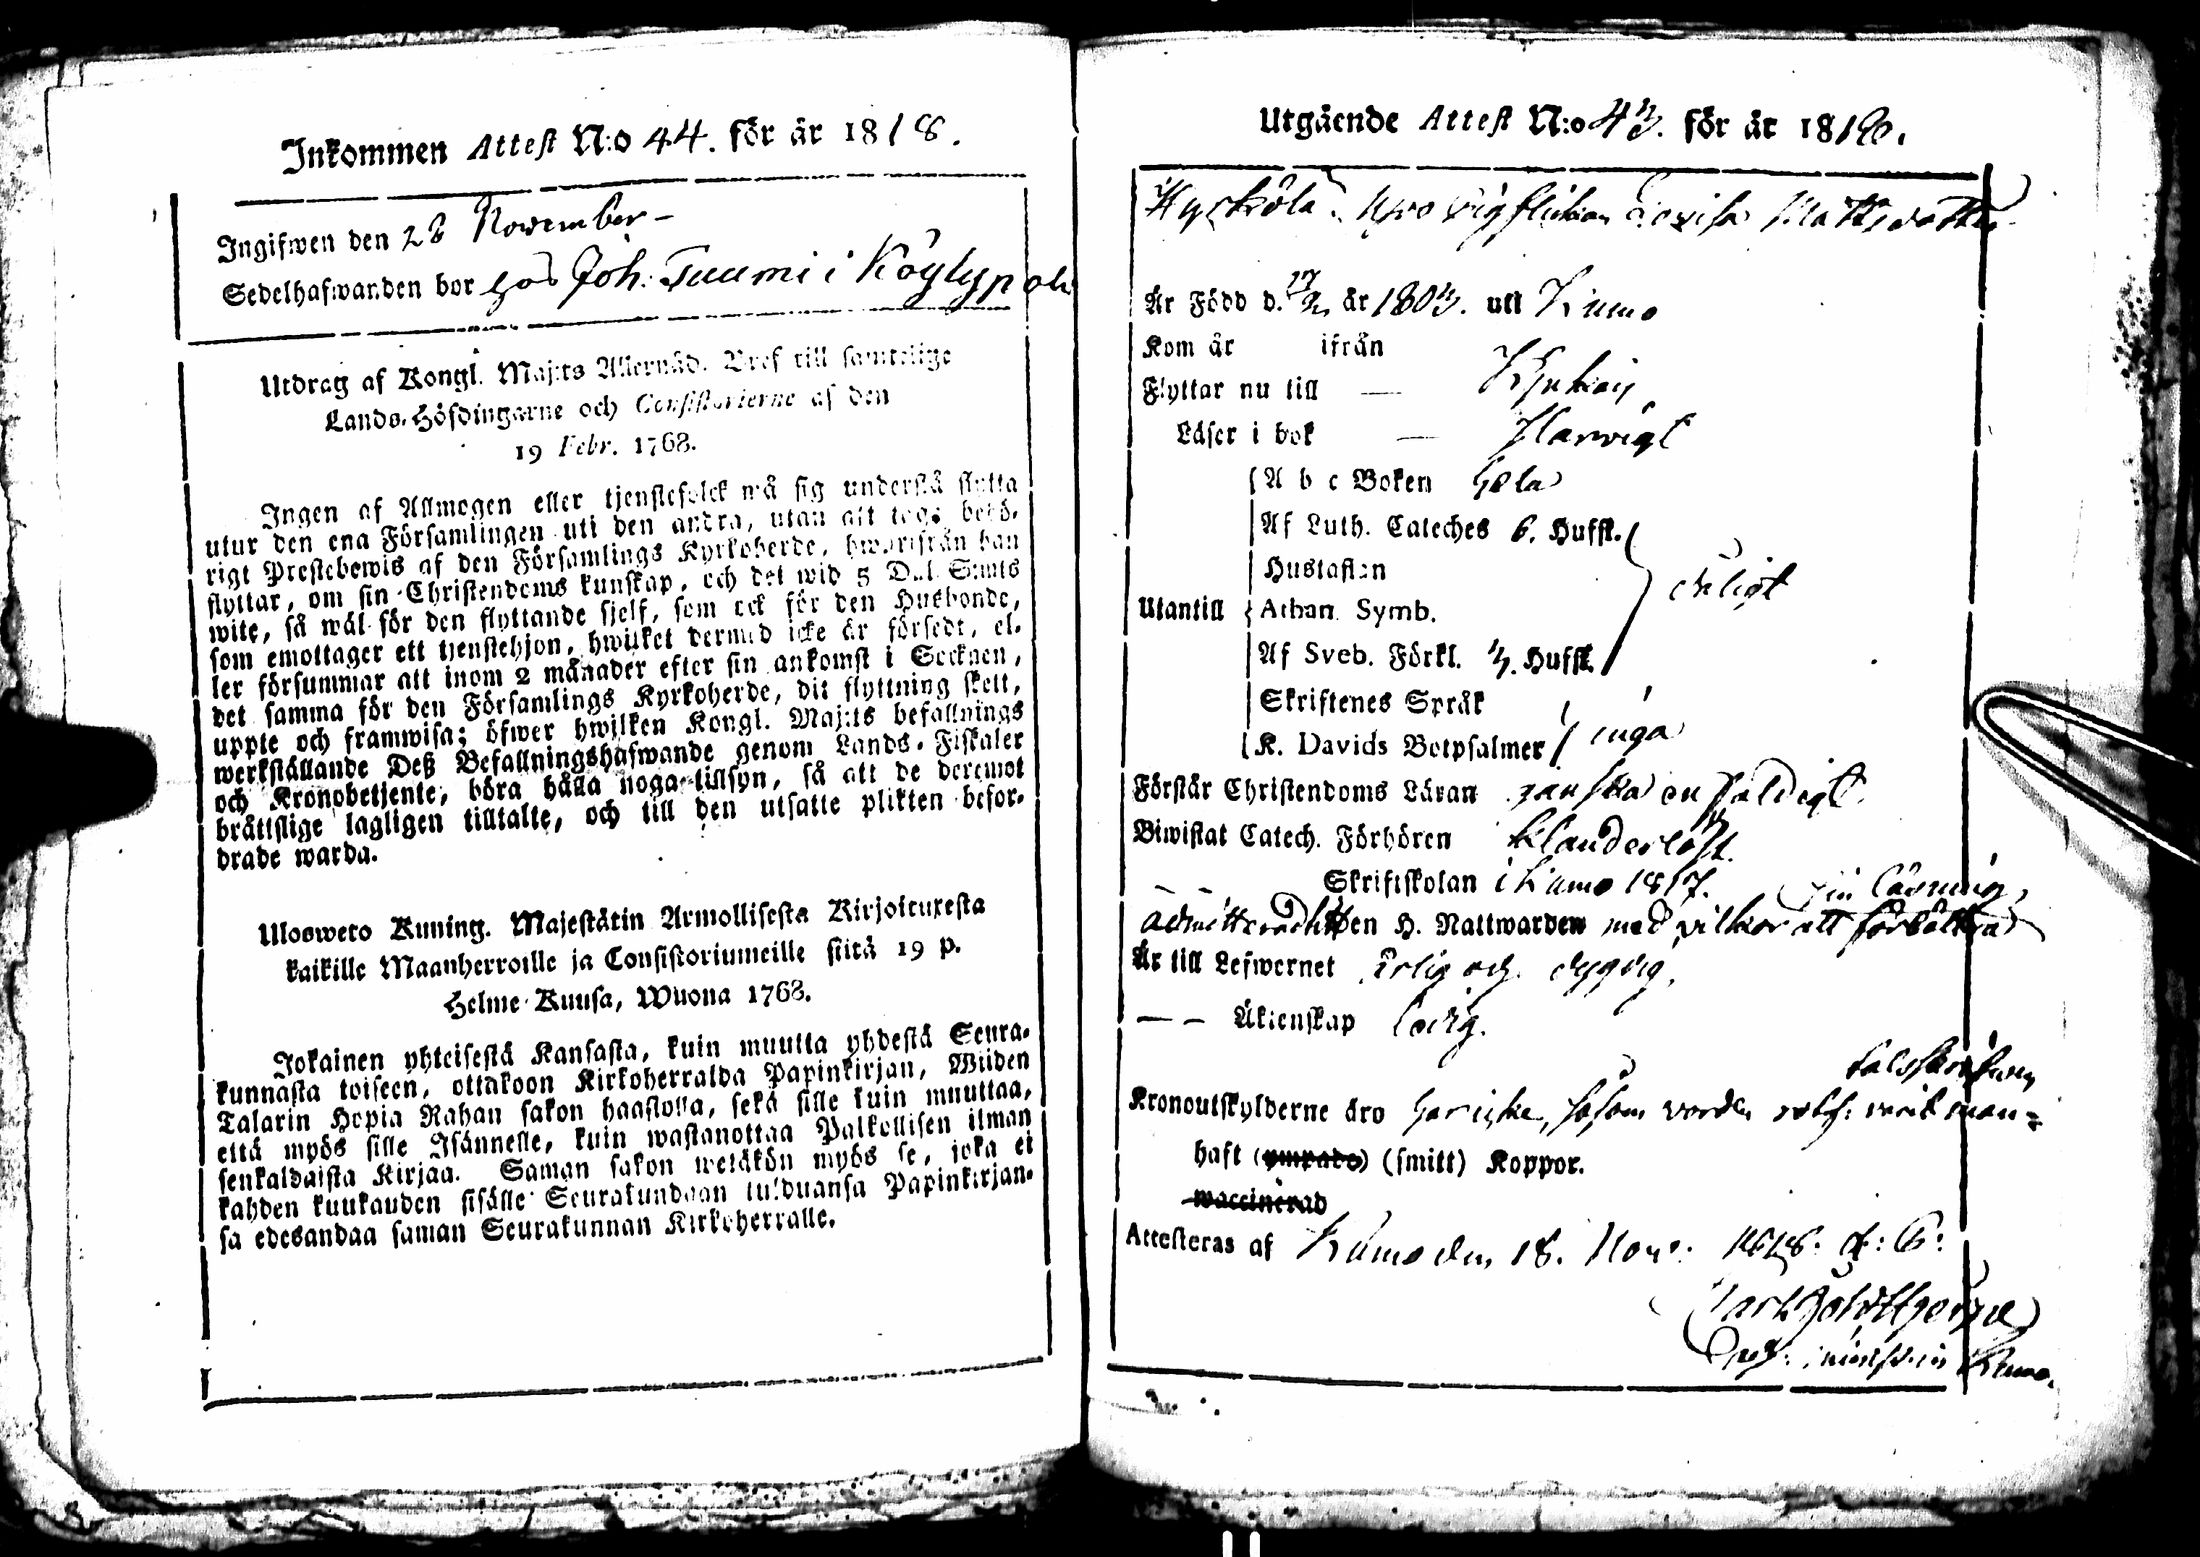 Inkommen Attest N:o 44. för år 1818.
Ingifwen den 28 November
Sedelhafwanden bor hos Joh. Tuumi i Köylypolv
Utdrag af Kongl. Maj:ts Allernåd. Bref till samtelige
Lands-Höfdingarne och Consistorierne af den
19 Febr. 1768.
Ingen af Allmogen eller tjenstefolck må sig understå flytta
utur den ena Församlingen uti den andra, utan att taga behö-
rigt Prestebewis af den Församlings Kyrkoherde, hwarifrån han
flyttar, om sin Christendoms kunskap, och det wid 5 Dal. Smts
wite, så wäl för den flyttande sjelf, som ock för den Husbonde,
som emottager ett tjenstehjon, hwilket dermed icke är försedt, el-
ler försummar att inom 2 månader efter sin ankomst i Socknen,
det samma för den Församlings Kyrkoherde, dit flyttning skett,
uppte och framwisa; öfwer hwilken Kongl. Maj:ts befallnings
werkställande Deß Befallningshafwande genom Lands-Fiskaler
och Kronobetjente, böra hålla noga tillsyn, så att de deremot
bråttslige lagligen tilltalte, och till den utsatte plikten befor-
drade warda.
Uloswetο Kuning. Majestätin Armollisesta Kirjoituxesta
kaikille Maanherroille ja Consistoriumeille siitä 19 p.
Helme-Kuusa, Wuona 1768.
Jokainen yhteisestä Kansasta, kuin muutta yhdestä Seura-
kunnasta toiseen, ottakoon Kirkoherralda Papinkirjan, Wiiden
Talarin Hopia Rahan sakon haastolla, sekä sille kuin muuttaa,
että myös sille Isännelle, kuin wastanottaa Palkollisen ilman
senkaldaista Kirjaa. Saman sakon wetäkön myös se, joka ei
kahden kuukauden sisälle Seurakundaan tulduansa Papinkirjan-
sa edesandaa saman Seurakunnan Kirkoherralle.
Utgående Attest N:o 43. för år 1818.
Lovisa Mattsdotter
Är Född d. 17/2 år 1803. uti Kumo
Kom år ifrån
Flyttar nu till —
Läser i bok — Slarvigt
Utantill
A b c Boken hela
Af Luth. Cateches 6. Huffst.
Hustaflan
Athan. Symb.
Af Sveb. Förkl. Huffst.
Skriftenes Språk
K. Davids Botpsalmer inga
Förstår Christendoms Läran ganska enfaldigt
Biwistat Catech. Förhören klanderlöst.
Skriftskolan i Kumo 1817. sin läsning,
admitterad till den H. Nattwarden med vilkor att förbättra
Är till Lefwernet ärlig och dygdig.
— — Äktenskap ledig.
Kronoutskylderne äro
haft (ympade) (smitt) Koppor.
waccinerad
Attesteras af Kumo den 18. Nov. 1818.